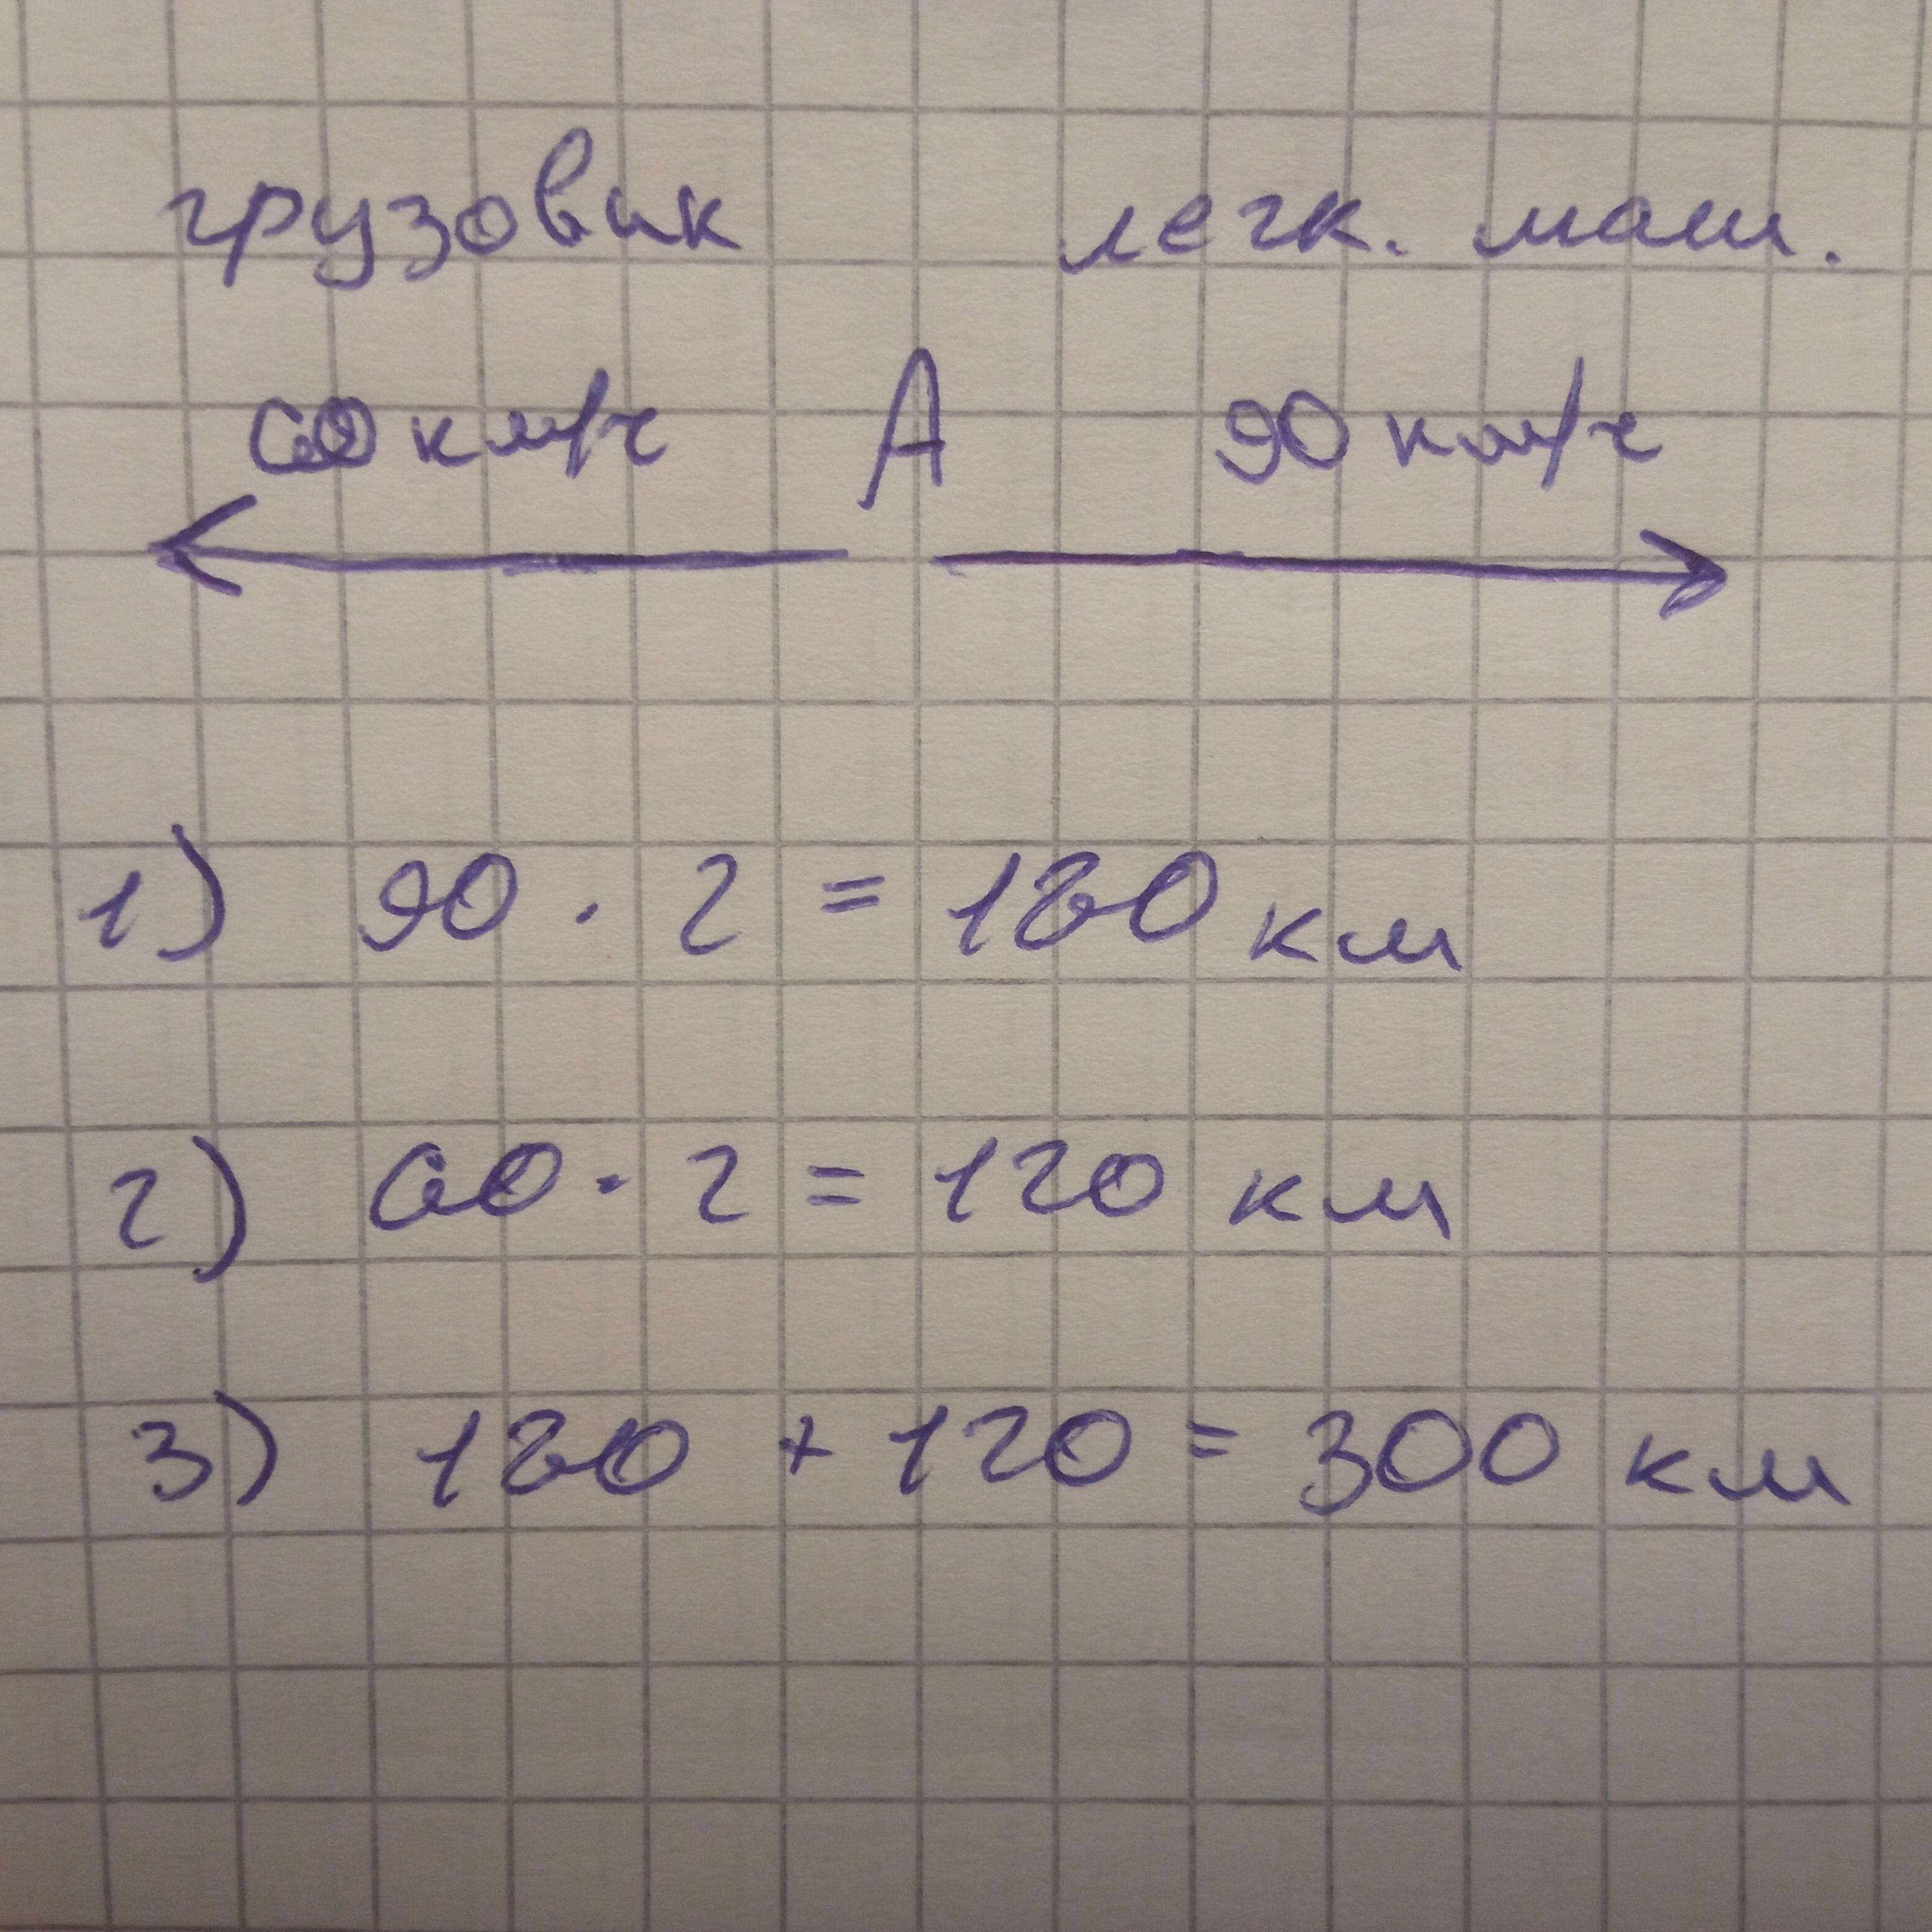 грузовик легк. маш.
60 км/ч А 90 км/ч
1) 90 · 2 = 180 км
2) 60 · 2 = 120 км
3) 180 + 120 = 300 км